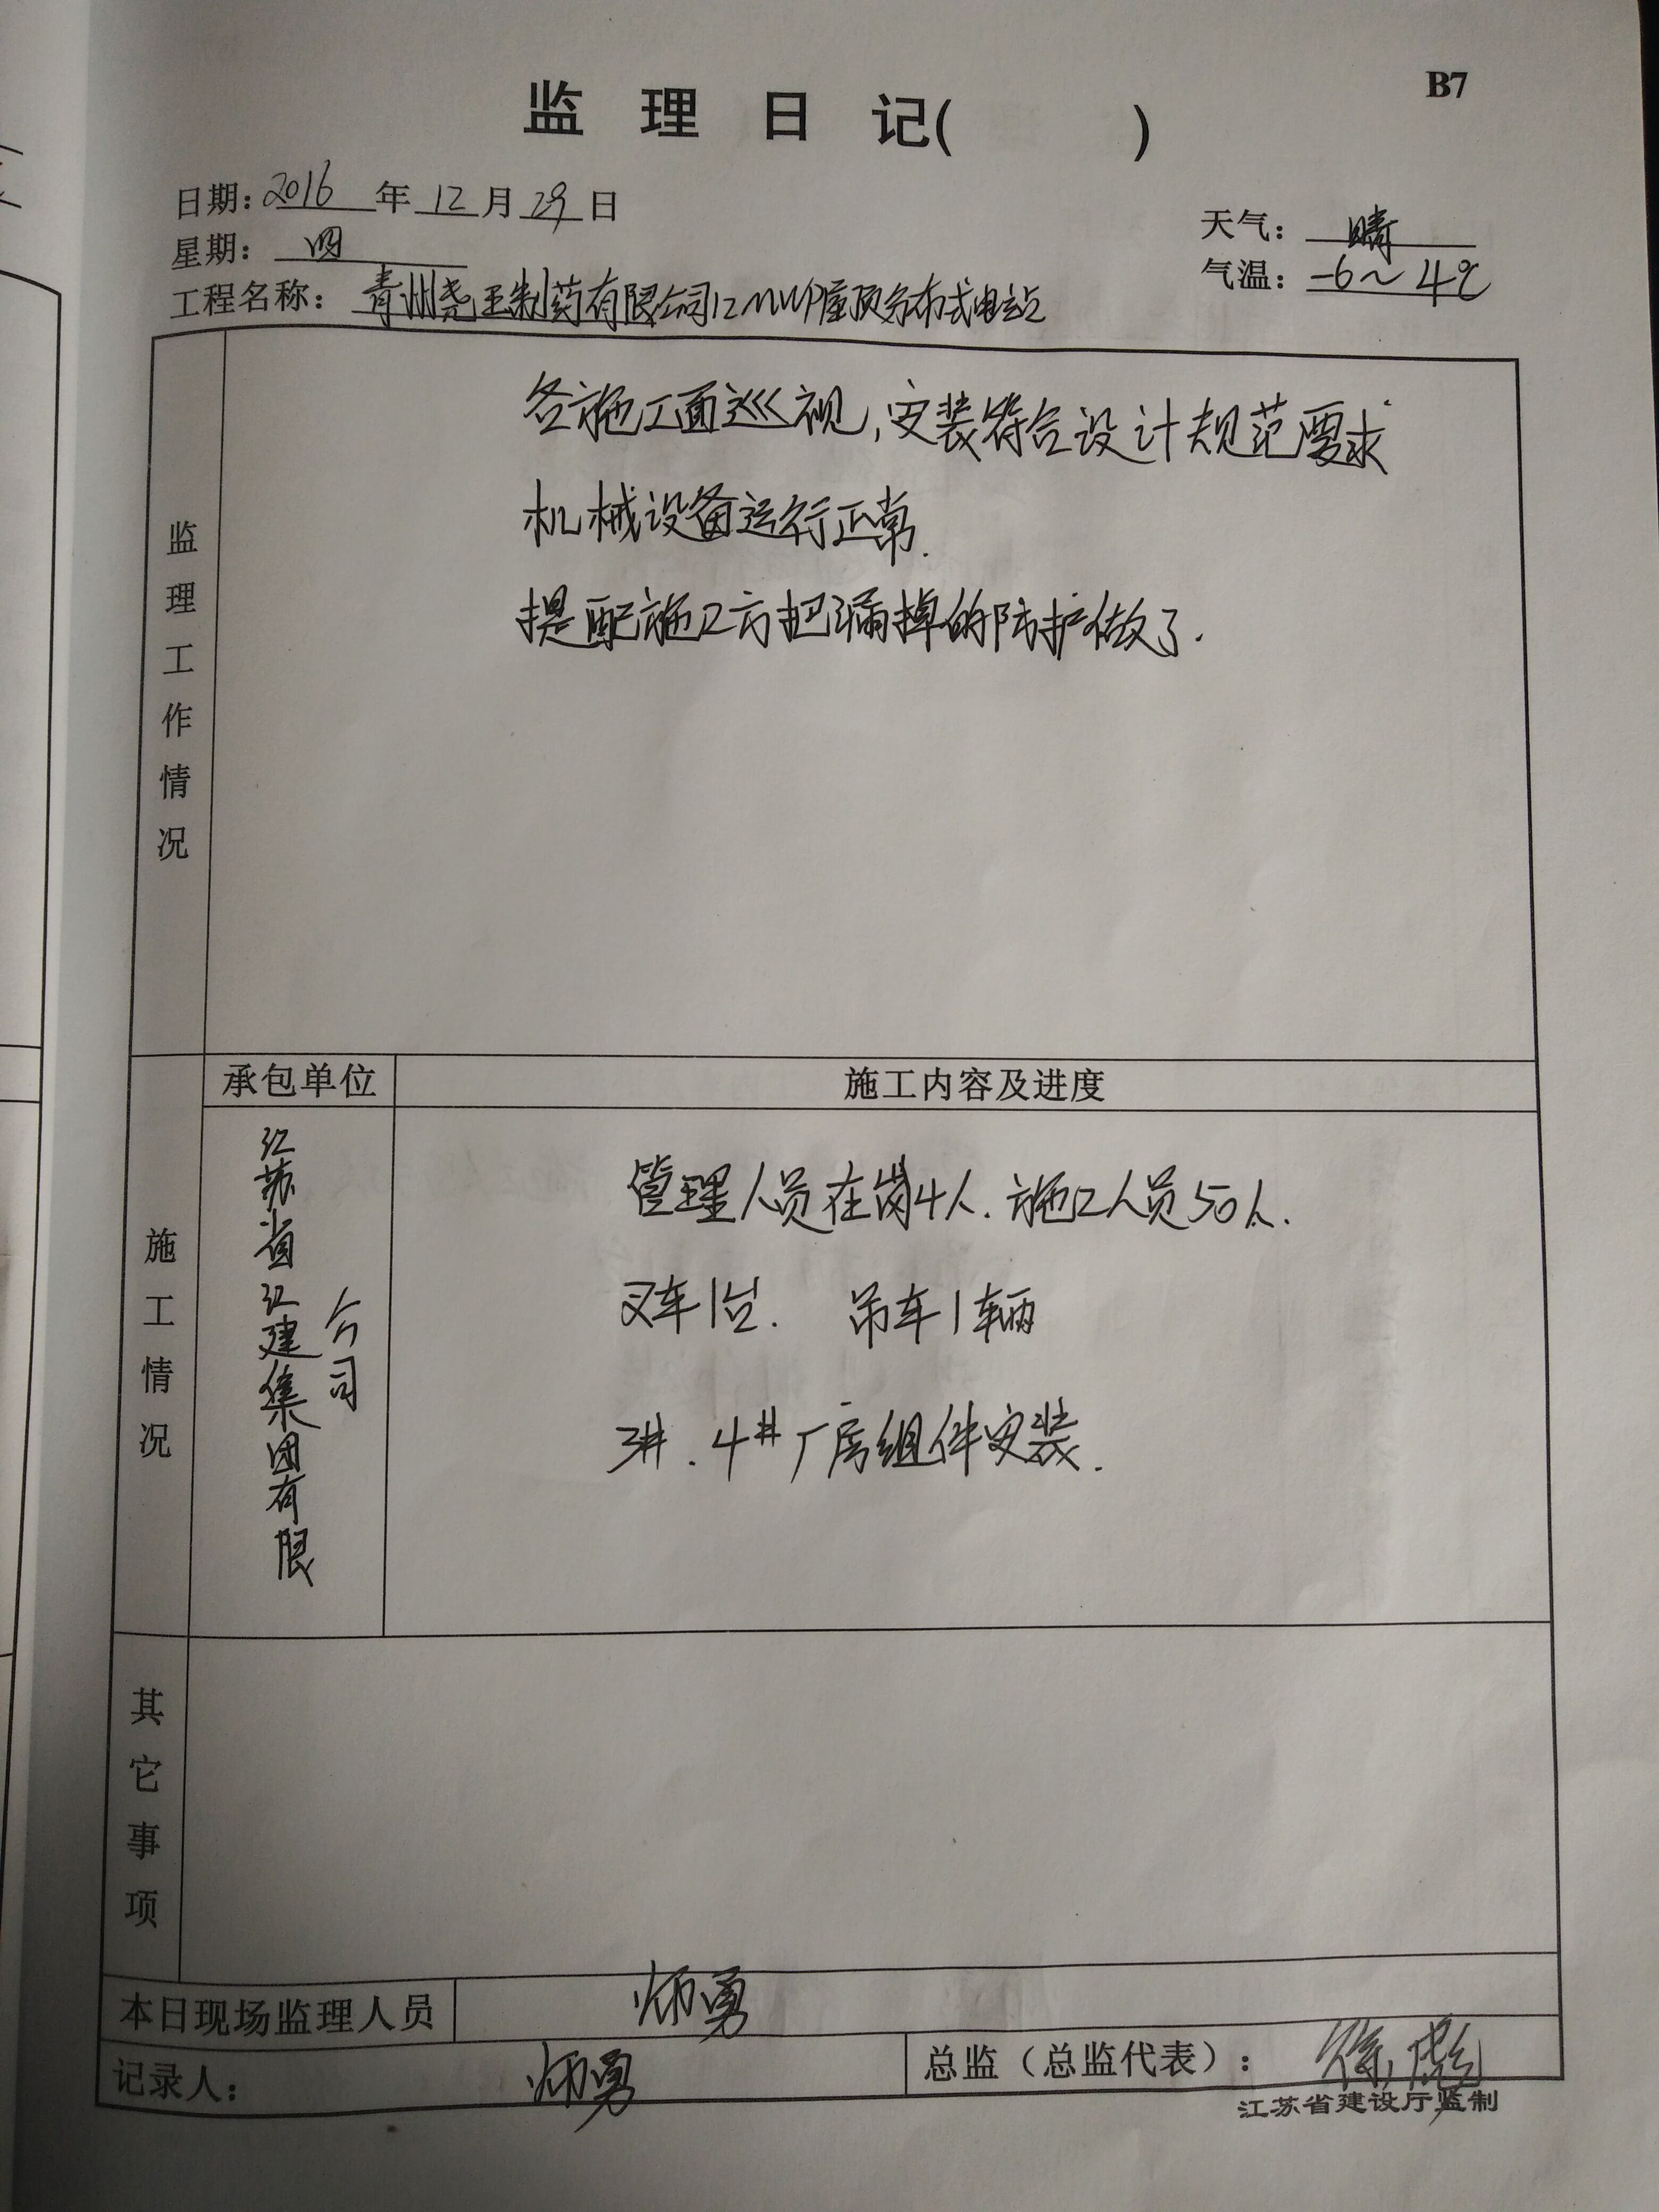 B7
监理日记(　　　)
日期:2016年12月29日
天气:晴
星期:四
气温:-6~4℃
工程名称:青州尧王制药有限公司12MWP屋顶分布式电站
监理工作情况
各施工面巡视,安装符合设计规范要求
机械设备运行正常.
提配施工方把漏掉的防护做了.
施工情况
承包单位
施工内容及进度
江苏省江建集团有限
公司
管理人员在岗4人.施工人员50人.
叉车1台. 吊车1辆
3#.4#厂房组件安装.
其它事项
本日现场监理人员
勇
记录人:
勇
总监(总监代表):徐彪
江苏省建设厅监制